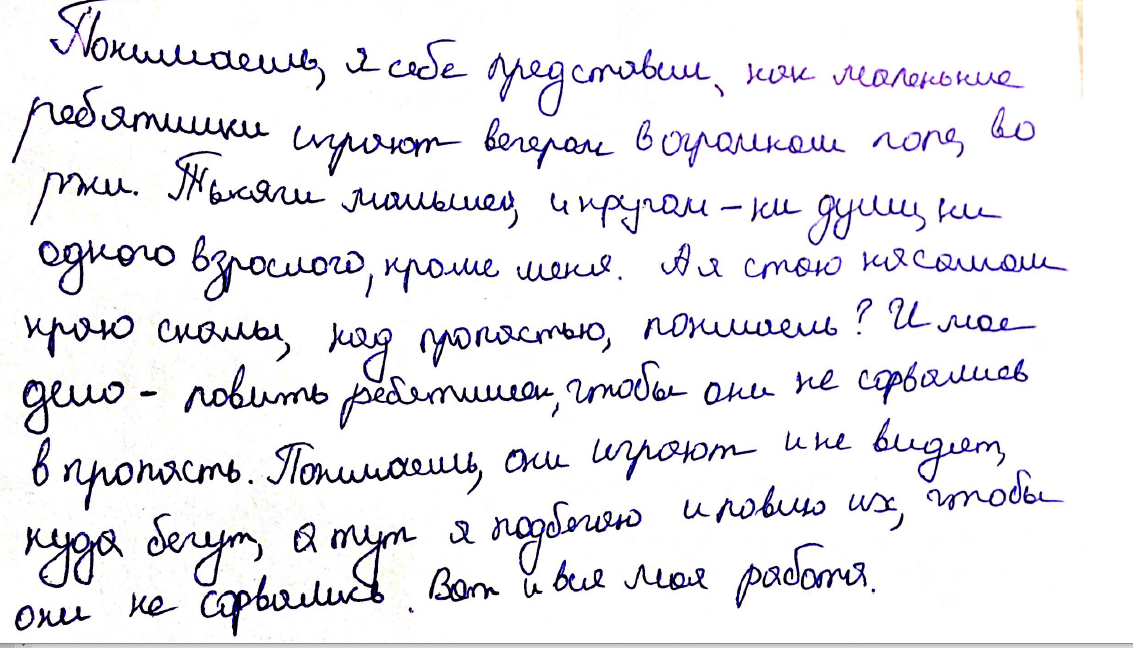 Понимаешь, я себе представил, как маленькие
ребятишки играют вечером в огромном поле, во
ржи. Тысячи малышей, и кругом – ни души, ни
одного взрослого, кроме меня. А я стою на самом
краю скалы, над пропастью, понимаешь? И мое
дело – ловить ребятишек, чтобы они не сорвались
в пропасть. Понимаешь, они играют и не видят,
куда бегут, а тут я подбегаю и ловлю их, чтобы
они не сорвались. Вот и вся моя работа.